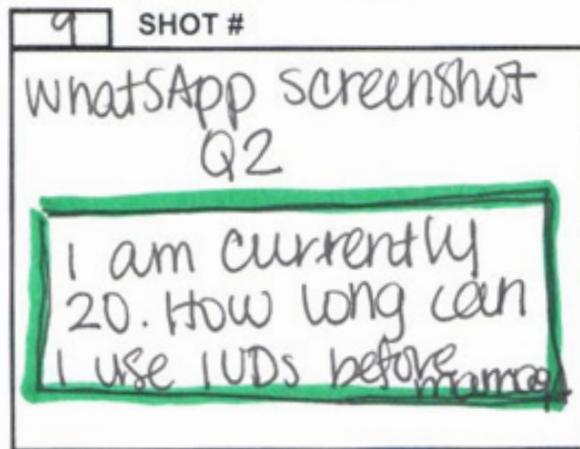 9 SHOT #
WhatsApp screenshot
Q2
I am currently
20. How long can
I use IUDs before
marriage